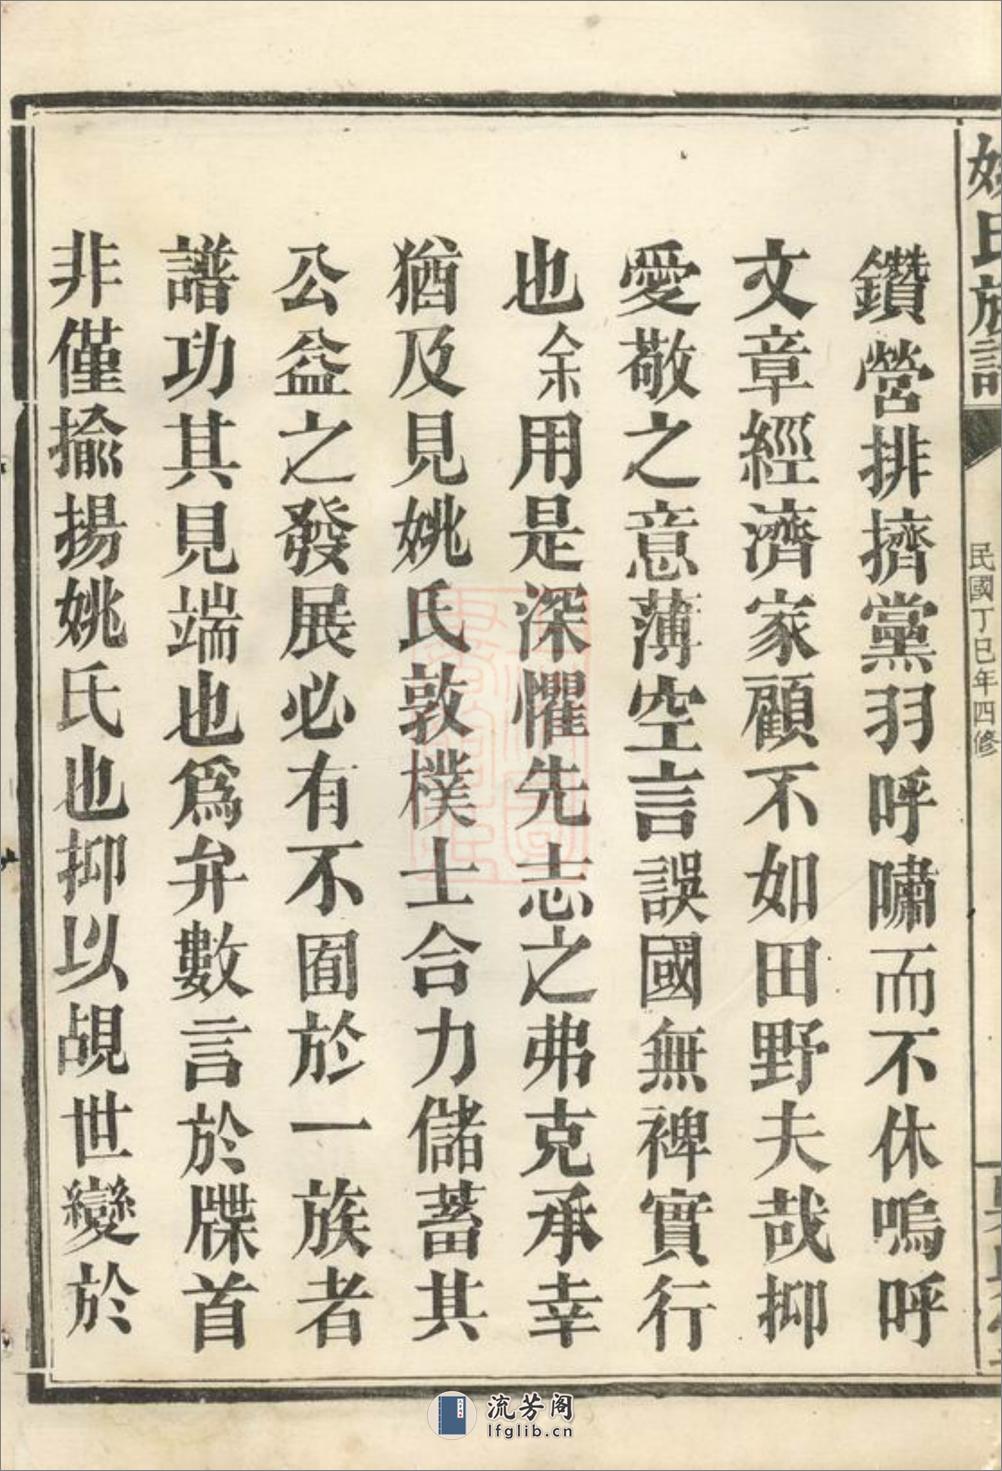 姚氏族譜
民國丁巳年四修
鑽營排擠黨羽呼嘯而不休嗚呼
文章經濟家顧不如田野夫哉抑
愛敬之意薄空言誤國無裨實行
也余用是深懼先志之弗克承幸
猶及見姚氏敦樸士合力儲蓄其
公益之發展必有不囿於一族者
譜功其見端也爲弁數言於牒首
非僅揄揚姚氏也抑以覘世變於
流芳阁
lfglib.cn